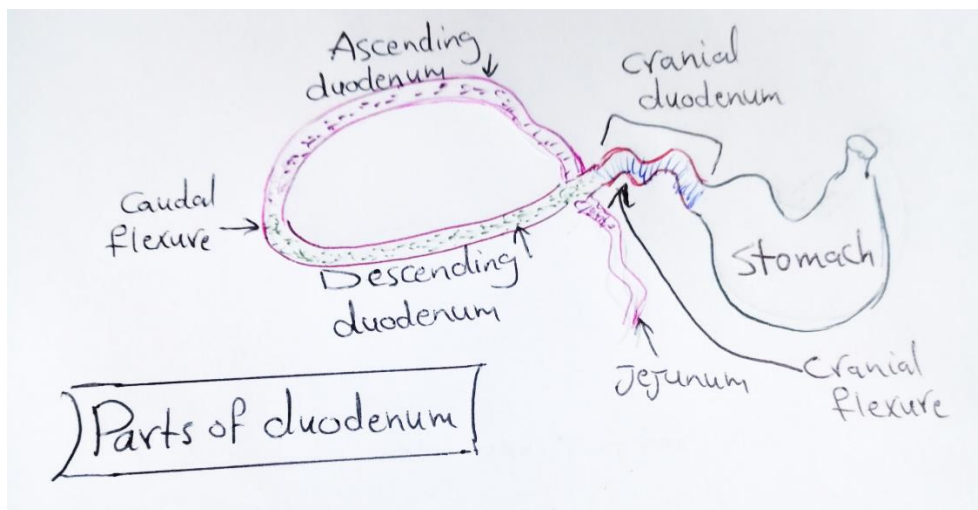 Ascending
duodenum
cranial
duodenum
Caudal
flexure
Descending
duodenum
Stomach
Jejunum
Cranial
flexure
Parts of duodenum